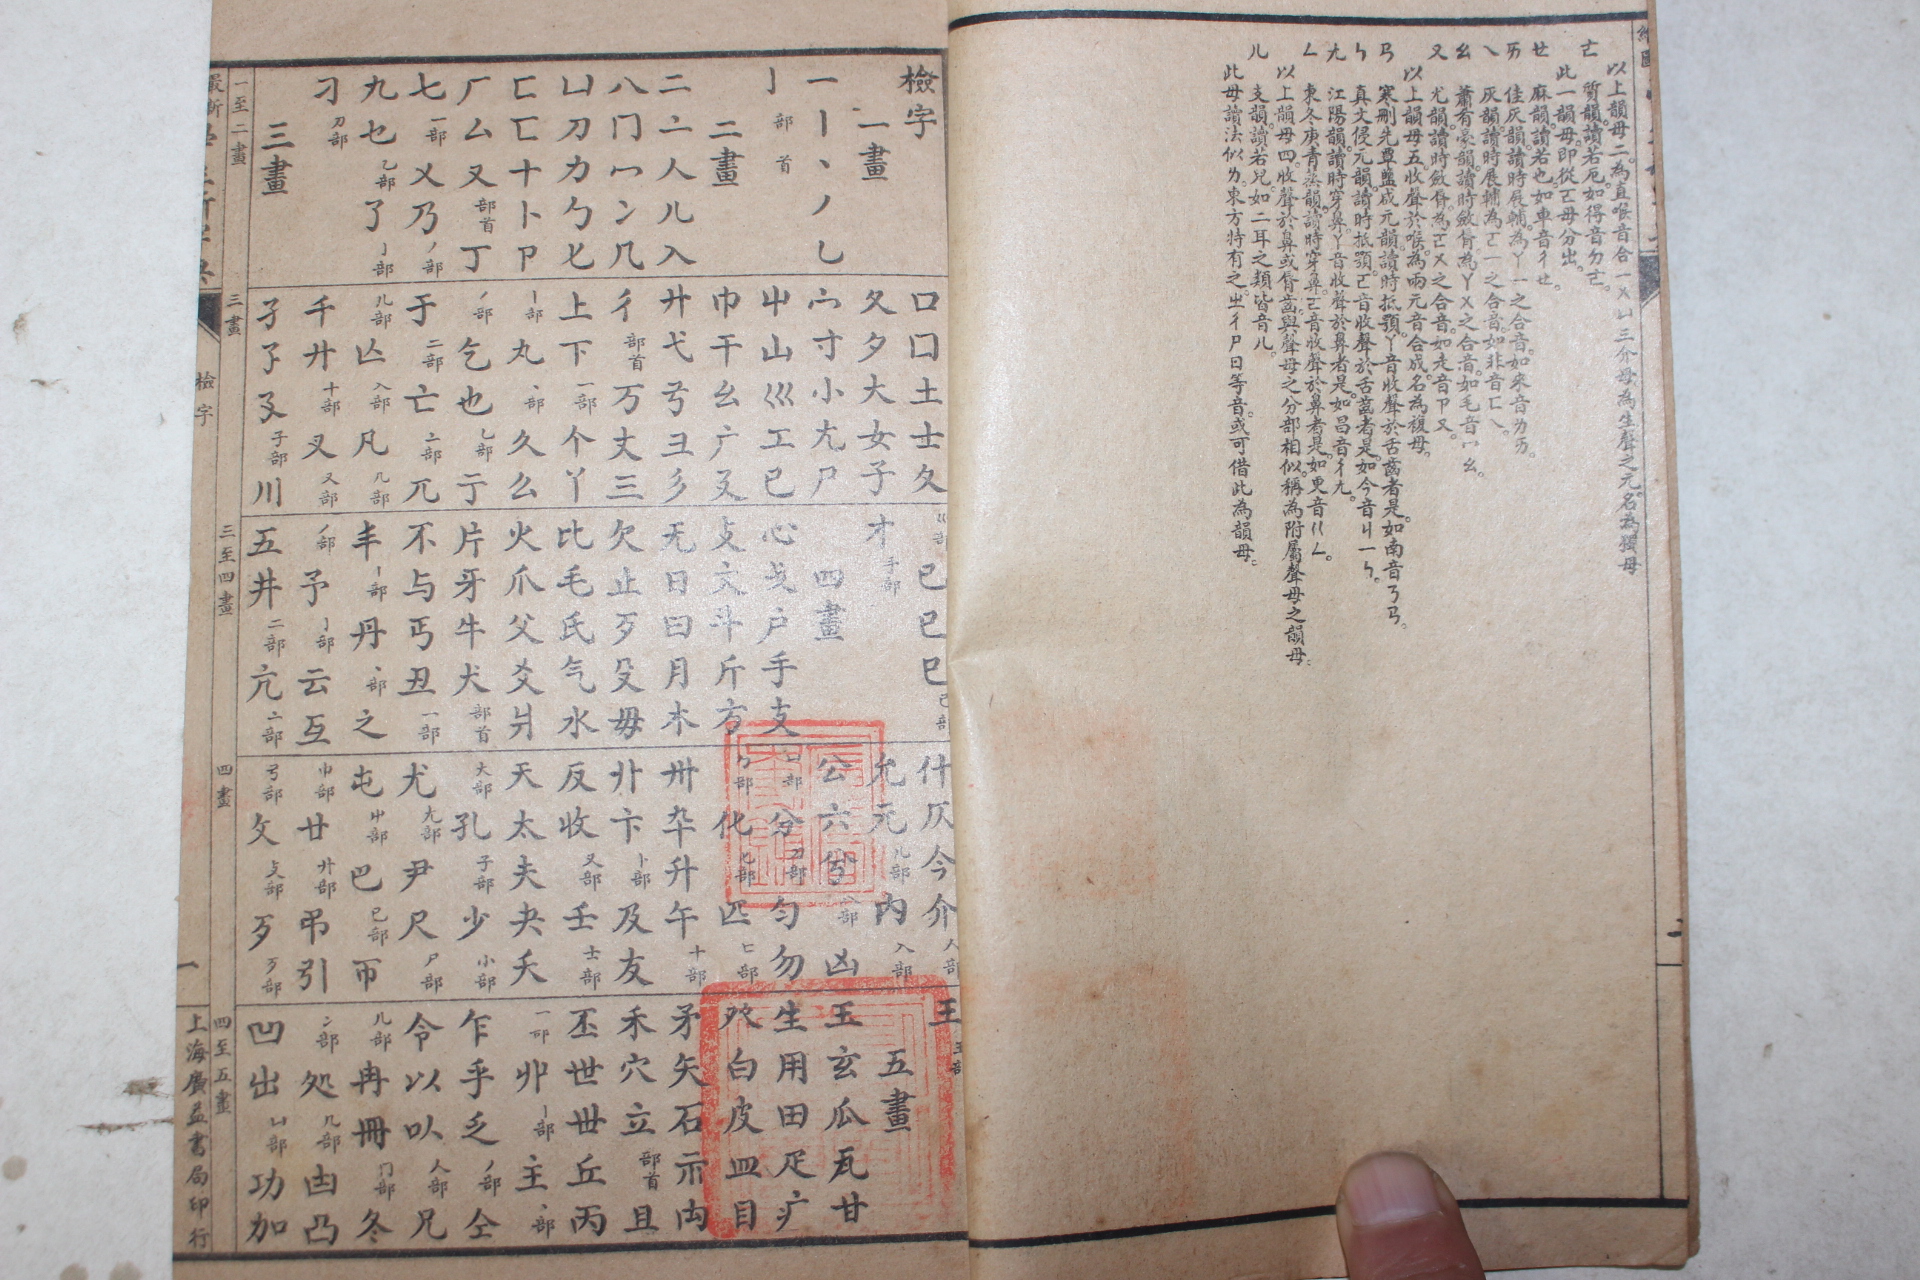 以上韻母二。為直喉音合一ㄨㄩ三介母。為生聲之元。名為獨母
ㄜ 質韻。讀若厄。如得音ㄉㄜ。
此一韻母。即從ㄛ母分出。
ㄝ 麻韻。讀若也。如車音ㄔㄝ。
ㄞ 佳灰韻。讀時展輔。為ㄚ一之合音。如來音ㄌㄞ。
ㄟ 灰韻。讀時展輔。為ㄛ一之合音。如非音ㄈㄟ。
ㄠ 蕭肴豪韻。讀時斂脣。為ㄚㄨ之合音。如毛音ㄇㄠ。
ㄡ 尤韻。讀時斂脣。為ㄛㄨ之合音。如走音ㄗㄡ。
以上韻母五。收聲於喉。為兩元音合成。名為複母。
ㄢ 寒刪先覃鹽咸元韻。讀時抵顎。ㄚ音收聲於舌齒者是。如南音ㄋㄢ。
ㄣ 真文侵元韻。讀時抵顎。ㄛ音收聲於舌齒者是。如今音ㄐ一ㄣ。
ㄤ 江陽韻。讀時穿鼻。ㄚ音收聲於鼻者是。如昌音ㄔㄤ。
ㄥ 東冬庚青蒸韻。讀時穿鼻。ㄛ音收聲於鼻者是。如更音ㄍㄥ。
以上韻母四。收聲於鼻或脣齒。與聲母之分部相似。稱為附屬聲母之韻母。
ㄦ 支韻。讀若兒。如二耳之類皆音ㄦ。
此母讀法似為東方特有之。ㄓㄔㄕㄖ等音。或可借此為韻母。
檢字
一畫
一丨丶丿乚
亅 部首
二畫
二亠人儿入
八冂冖冫几
凵刀力勹匕
匚匸十卜卩
厂厶又 部首 丁
七 一部 乂乃 丿部
九乜 乙部 了 亅部
刁 刀部
三畫
口囗土士夂
夊夕大女子
宀寸小尢尸
屮山巛工己
巾干幺广廴
廾弋弓彐彡
彳 部首 万丈三
上下 一部 个丫
丨部 丸 丶部 久么
丿部 乞也 乙部 亍
于 二部 亡 亠部 兀
儿部 亾 入部 凡 几部
千卄 十部 叉 又部
孑孓孒 子部 川
巛部 已巳㔾 己部
才 手部
四畫
心戈戶手支
攴文斗斤方
无日曰月木
欠止歹殳毋
比毛氏气水
火爪父爻爿
片牙牛犬 部首
不与丏丑 一部
丰 丨部 丹 丶部 之
丿部 予 亅部 云互
五井 二部 亢 亠部
什仄今介 人部
允元 儿部 內 入部
公六兮 八部 凶
凵部 分 刀部 勻勿
勹部 化 匕部 匹 匸部
卅卆升午 十部
卝卞 卜部 及友
反收 又部 壬 士部
天太夫夬夭
大部 孔 子部 少 小部
尤 尢部 尹尺 尸部
屯 屮部 巴 己部 帀
巾部 廿 廾部 弔引
弓部 攵 攴部 歹 歹部
王 玉部
五畫
玉玄瓜瓦甘
生用田疋疒
癶白皮皿目
矛矢石示禸
禾穴立 部首 且
丕世丗丘丙
一部 丱 丨部 主 丶部
乍乎乏 丿部 仝
令以㕥 人部 兄
儿部 冉冊 冂部 冬
冫部 処 几部 凷凸
凹出 凵部 功加
一至二畫
三畫
三至四畫
四畫
四至五畫
檢字
一
上海廣益書局印行